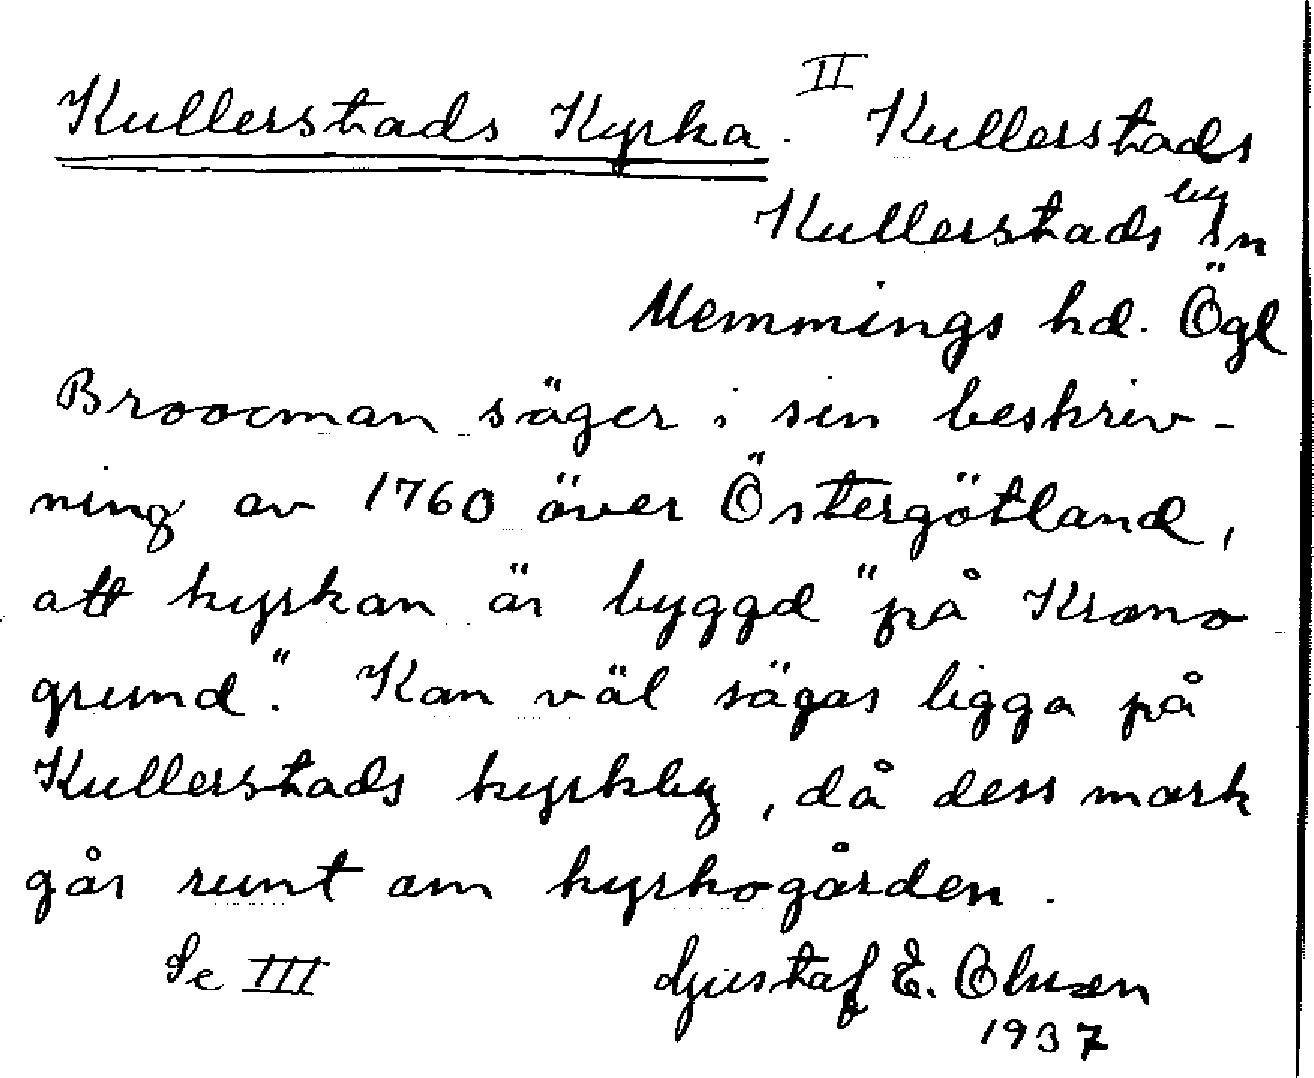 Kullerstads Kyrka. II Kullerstads
by
Kullerstads sn
Memmings hd. Ögl
Broocman säger i sin beskriv-
ning av 1760 över Östergötland,
att kyrkan är byggd "på Krono
grund". Kan väl sägas ligga på
Kullerstads kyrkby, då dess mark
går runt om kyrkogården.
Se III Gustaf E.
1937